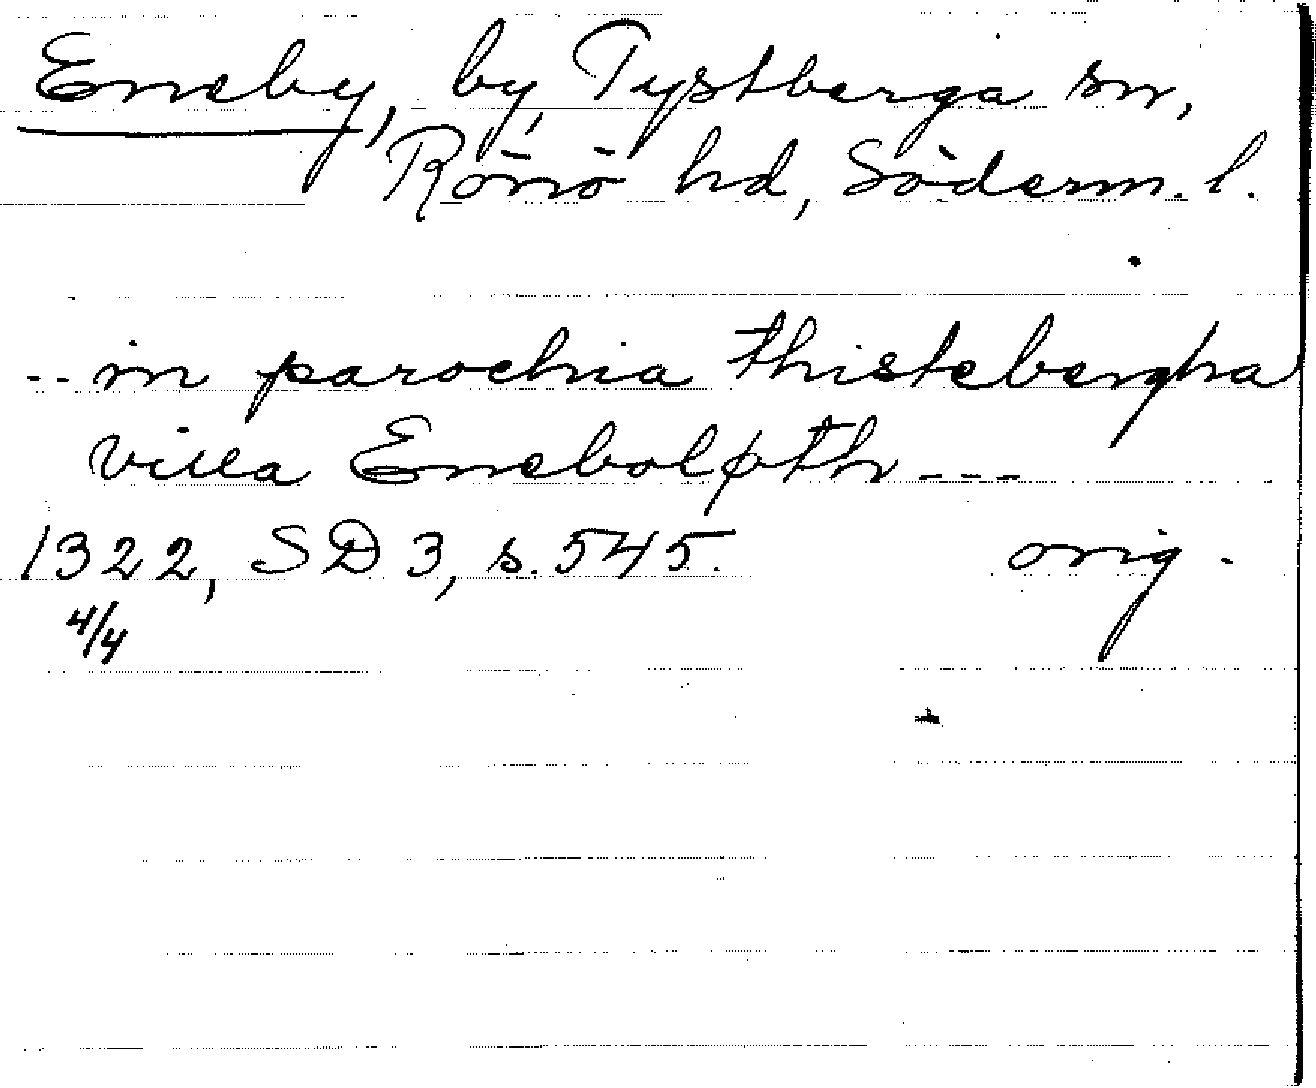 Eneby, by, Tystberga sn,
Rönö hd, Söderm. l.
-- in parochia thistebergha
villa Eneboløth ---
1322, SD 3, s. 545. orig.
4/4